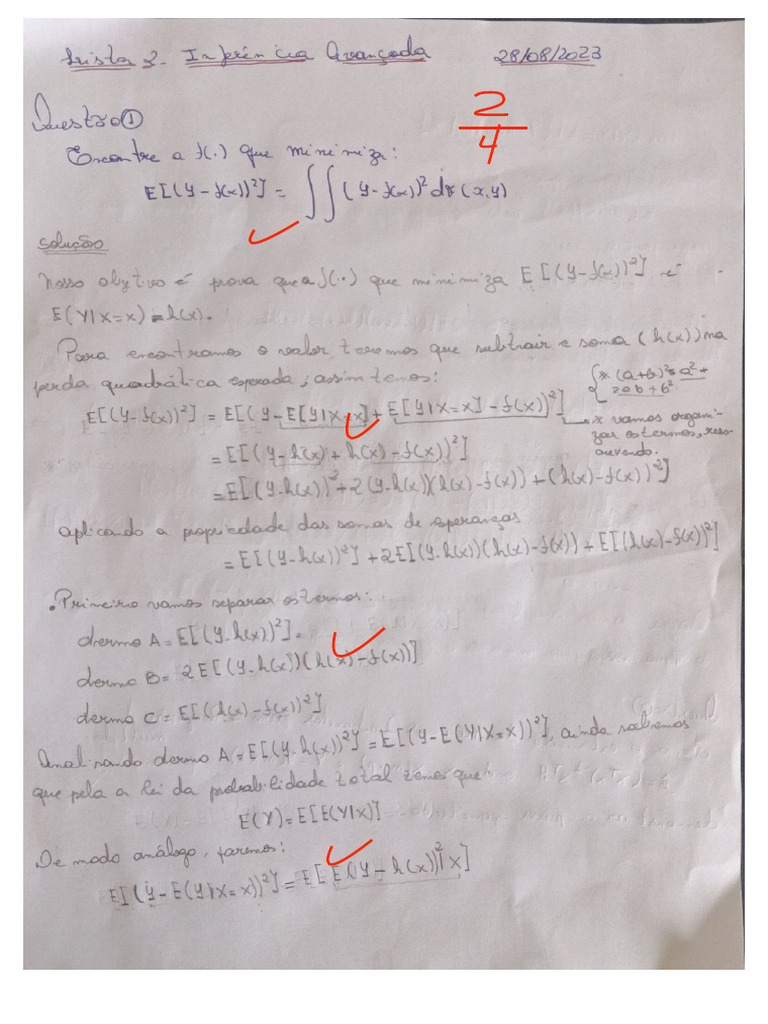 Lista 2. Inferência Avançada 28/08/2023
Questão ①
2/4
Encontre a f(.) que minimiza:
E[(y-f(x))²] = ∫∫(y-f(x))² dF(x,y)
solução
Nosso objetivo é prova que a f(.) que minimiza E[(y-f(x))²] é
E(Y|X=x) = h(x).
Para encontramos o valor, teremos que subtrair e soma (h(x)) na
perda quadrática esperada, assim temos:
* (a+b)² = a² +
2ab + b²
E[(y-f(x))²] = E[(y-E[Y|X=x] + E[Y|X=x] - f(x))²]
* vamos organi-
zar os termos, reso-
lvendo.
= E[(y-h(x) + h(x) - f(x))²]
= E[(y-h(x))² + 2(y-h(x))(h(x)-f(x)) + (h(x)-f(x))²]
aplicando a propriedade das somas de esperanças
= E[(y-h(x))²] + 2E[(y-h(x))(h(x)-f(x)) + E[(h(x)-f(x))²]
. Primeiro vamos separar os termos:
termo A = E[(y-h(x))²].
termo B = 2E[(y-h(x))(h(x)-f(x))]
termo C = E[(h(x)-f(x))²]
Analisando termo A = E[(y-h(x))²] = E[(y-E(Y|X=x))²], ainda sabemos
que pela a lei da probabilidade total temos que
E(Y) = E[E(Y|X)]
De modo análogo, faremos:
E[(y-E(Y|X=x))²] = E[E((y-h(x))²|X]